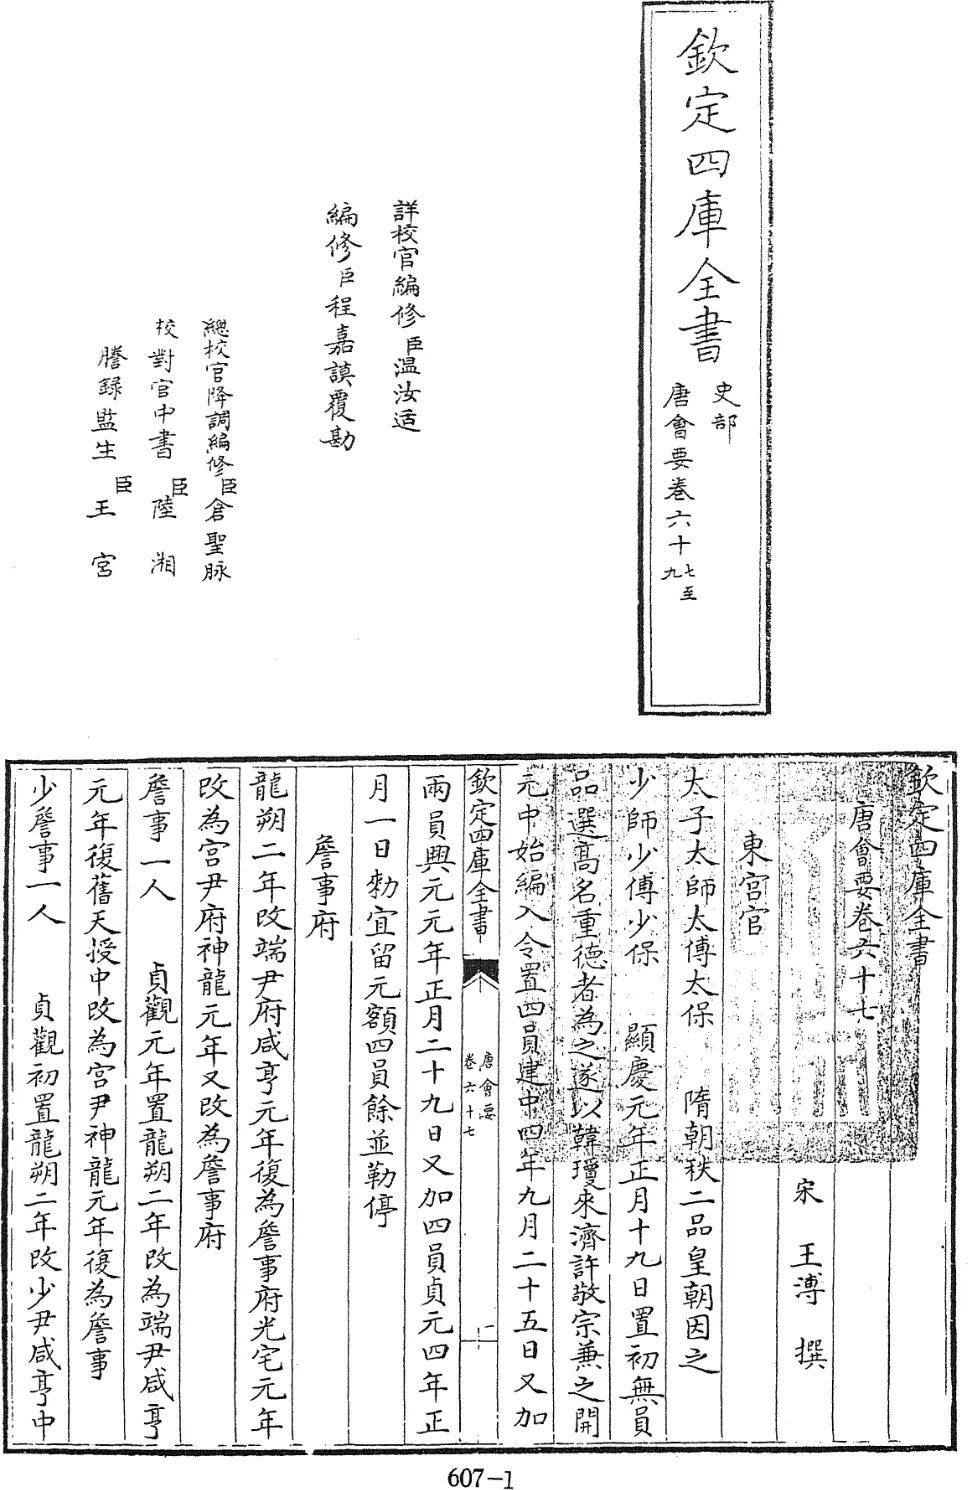 欽定四庫全書
史部
唐會要卷六十七至
九
詳校官編修臣温汝适
編修臣程嘉謨覆勘
總校官降調編修臣倉聖脉
校對官中書臣陸湘
謄録監生臣王宫
欽定四庫全書
唐會要卷六十七
宋 王溥 撰
東宫官
太子太師太傅太保 隋朝秩二品皇朝因之
少師少傅少保 顯慶元年正月十九日置初無員
品選髙名重徳者為之遂以韓瓊來濟許敬宗兼之開
元中始編入令置四員建中四年九月二十五日又加
欽定四庫全書
唐會要
卷六十七
一
兩員興元元年正月二十九日又加四員貞元四年正
月一日勅宜留元額四員餘並勒停
詹事府
龍朔二年改端尹府咸亨元年復為詹事府光宅元年
改為宫尹府神龍元年又改為詹事府
詹事一人 貞觀元年置龍朔二年改為端尹咸亨
元年復舊天授中改為宫尹神龍元年復為詹事
少詹事一人 貞觀初置龍朔二年改少尹咸亨中
607-1